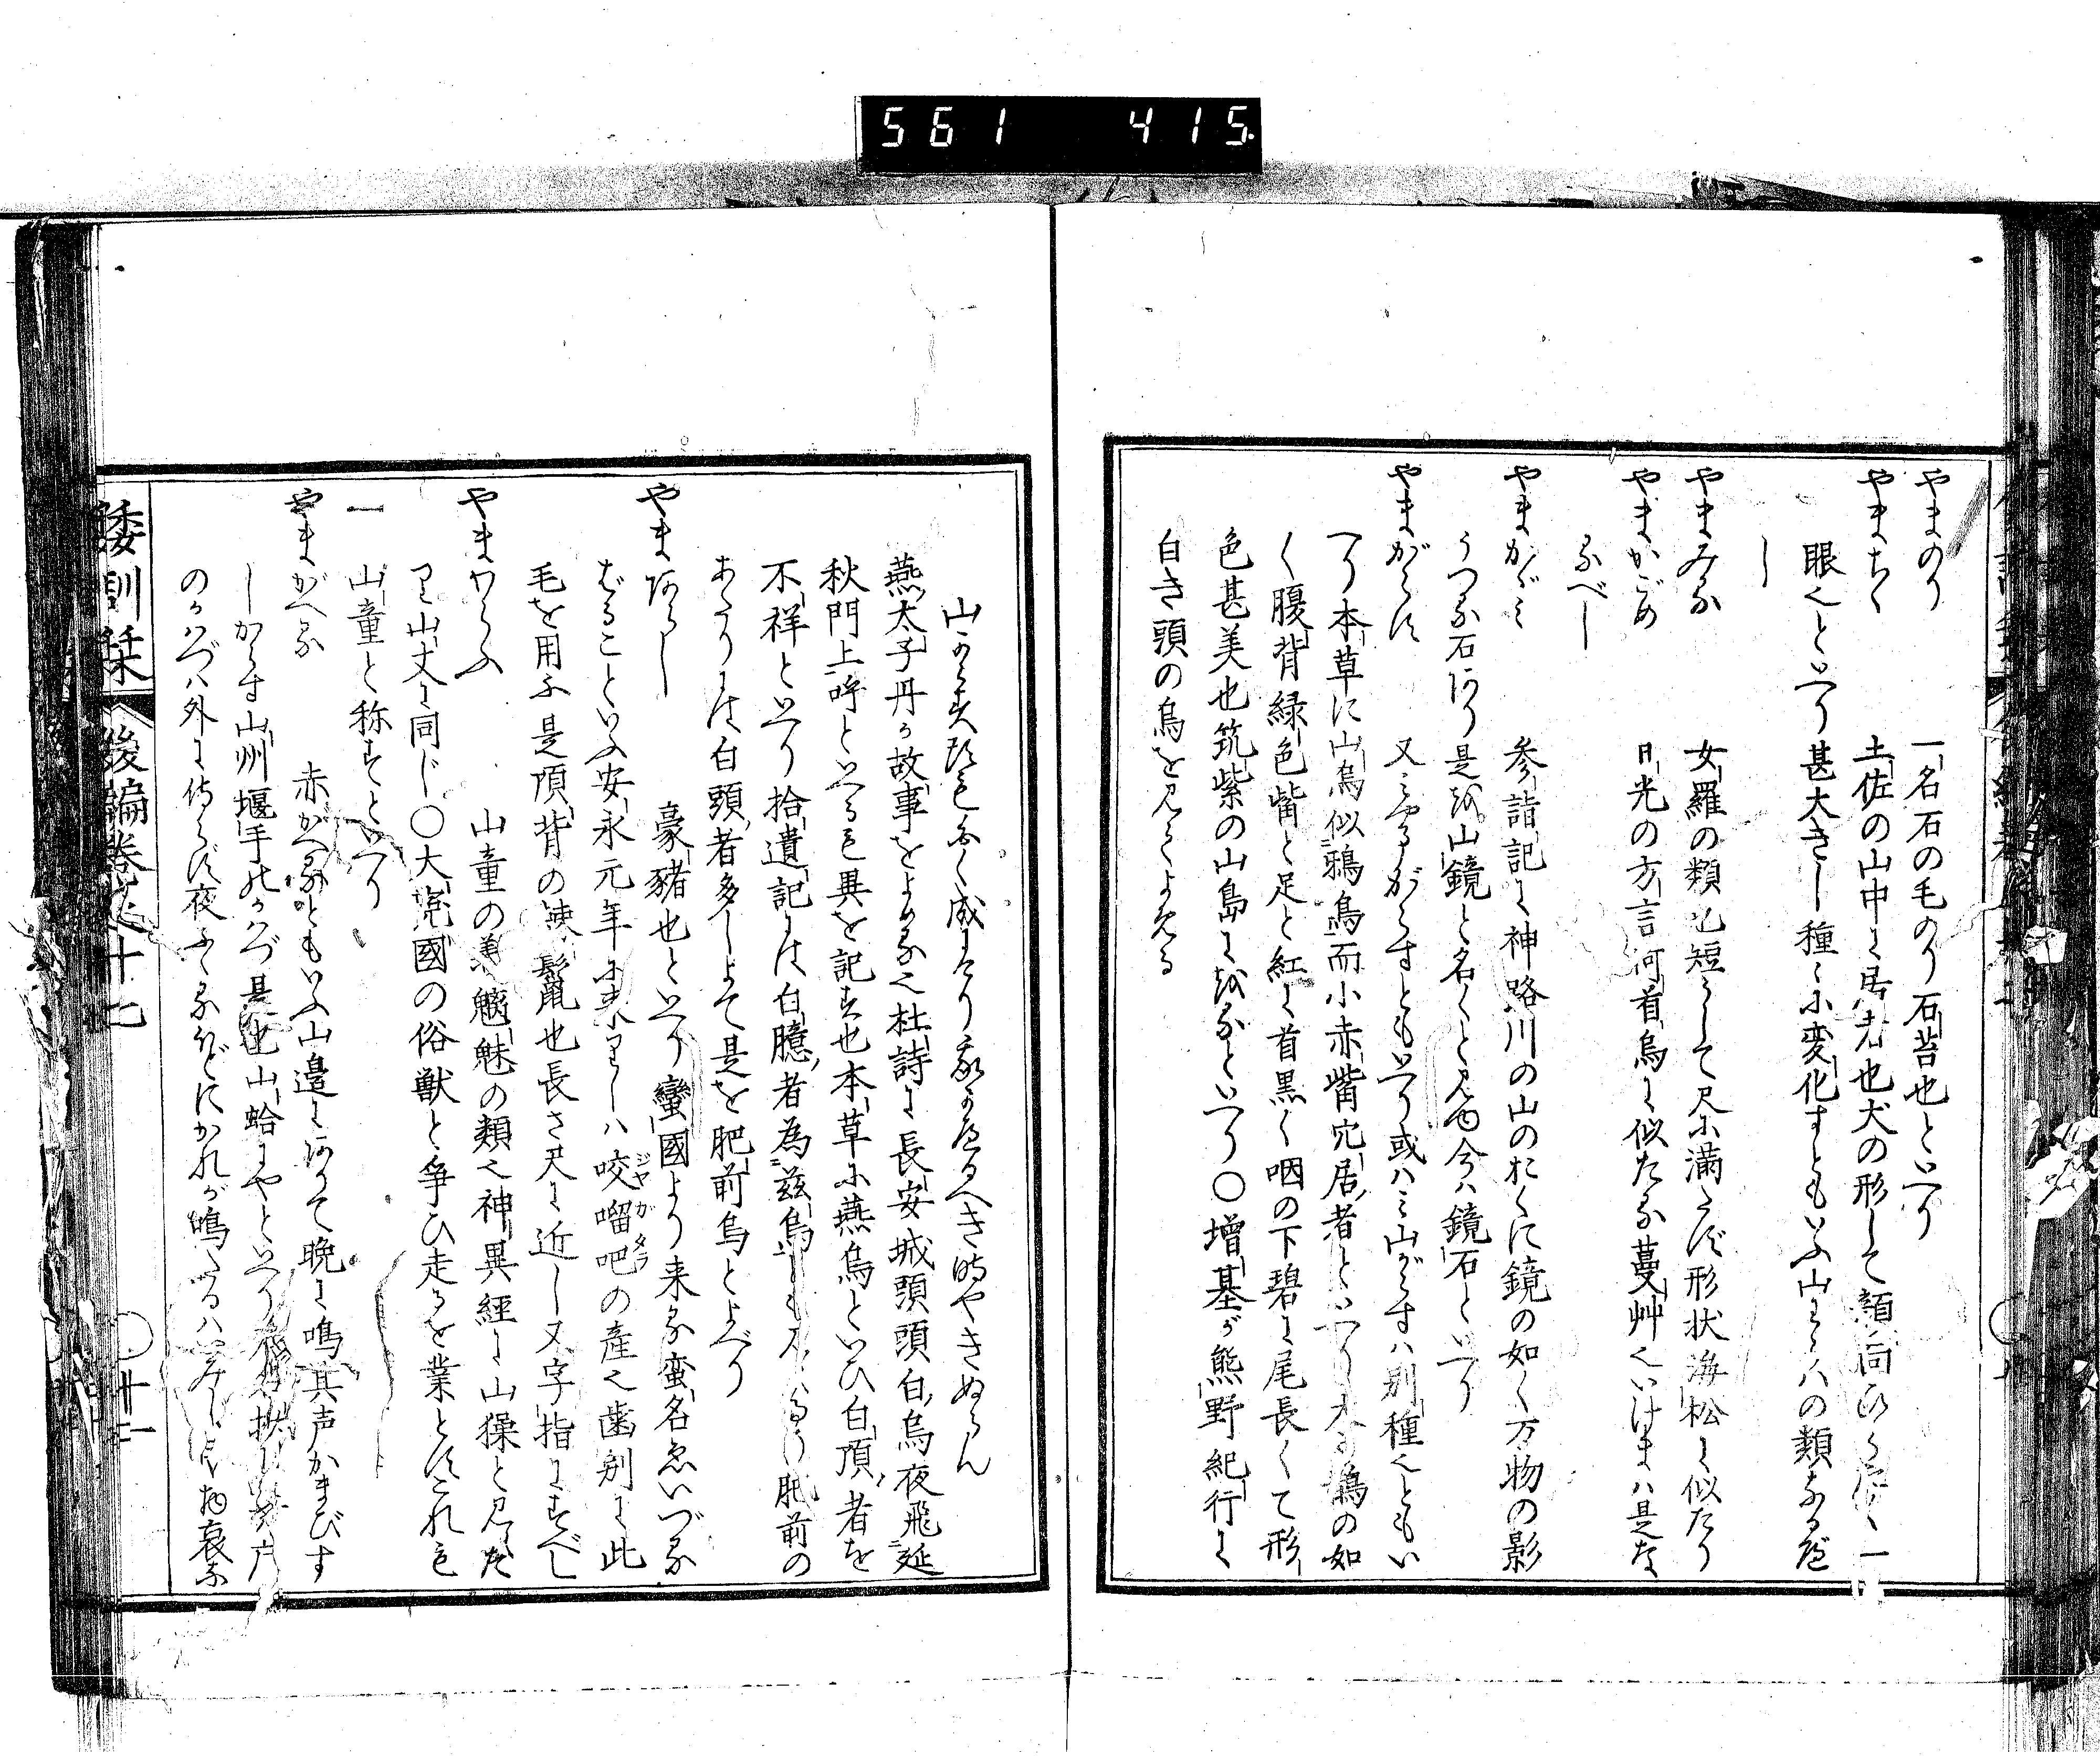 561 415.
やまのり 一名石の毛のり石苔也といへり
やまちゝ 土佐の山中に居者也犬の形して 一
眼也といへり甚大きし種々に変化すともいふ山わらハの類なるべ
し
やまみる 女羅の類也短くして尺に満たず形状海松に似たり
やまかごめ 日光の方言何首烏に似たる蔓艸也いけまハ是な
るべし
やまかゞミ 参詣記に神路川の山のおくに鏡の如く万物の影
うつる石あり是を山鏡と名くと見ゆ今ハ鏡石といへり
やまがらす 又ミやまがらすともいへり或ハミ山がらすハ別種也ともい
へり本草に山烏似鴉烏而小赤觜穴居者といへり 鳩の如
く腹背緑色觜と足と紅に首黒く咽の下碧に尾長くて形
色甚美也筑紫の山島にをるといへり〇増基が熊野紀行に
白き頭の烏を見てよめる
山からすかしらも白く成にけり我かへるへき時やきぬらん
燕太子丹か故事をよめる也杜詩に長安城頭頭白烏夜飛延
秋門上呼といへるも異を記す也本草に燕烏といひ白頂者を
不祥といへり拾遺記には白臆者為慈烏とも 肥前の
あたりは白頭者多しよて是を肥前烏とよべり
やまあらし 豪豬也といへり蠻國より来る蛮名ゑいづる
ばることいふ安永元年に来りしハ咬��吧の産也歯別に此
毛を用ふ是頂背の 鬣也長さ尺に近し又字指にすべし
やまわらふ 山童の義魑魅の類也神異經に山𤢖と見えた
り山丈に同じ〇大 國の俗獣と争ひ走るを業とすこれも
山童と称すといへり
一
やまがへる 赤がへるともいふ山邉にありて晩に鳴其声かまびす
しからす山州堰手のかハづ是也山蛤にやといへり 井戸
のかハづハ外に侍らず夜ふくるほどにかれが鳴たるハいみじく 物哀に
倭訓栞 後編巻之十七 〇卄一